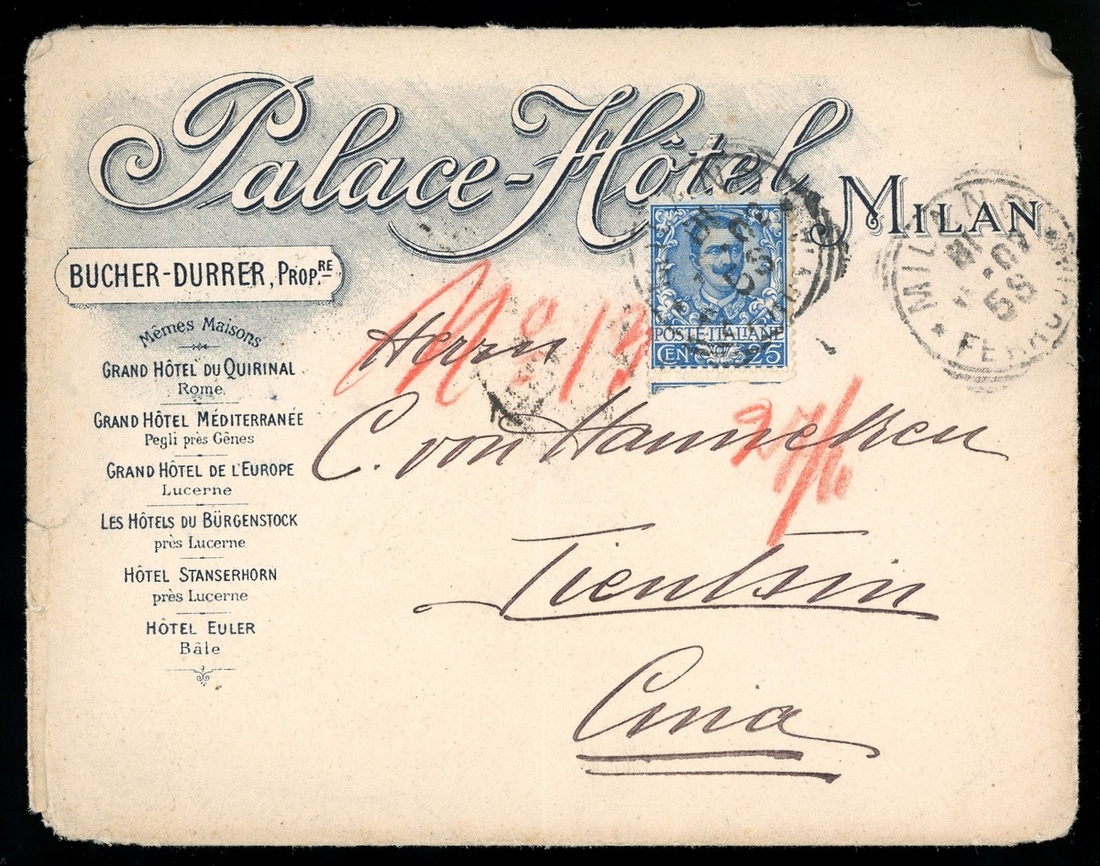 Palace-Hôtel
MILAN
BUCHER-DURRER, PROP.RE
Mêmes Maisons
GRAND HÔTEL DU QUIRINAL
Rome
GRAND HÔTEL MÉDITERRANÉE
Pegli près Gênes
GRAND HÔTEL DE L'EUROPE
Lucerne
LES HÔTELS DU BÜRGENSTOCK
près Lucerne
HÔTEL STANSERHORN
près Lucerne
HÔTEL EULER
Bâle
POSTE ITALIANE
CENT. 25
MILANO
FERROVIA
No 13
27/6
Herrn
C. von Hanneken
Tientsin
Cina